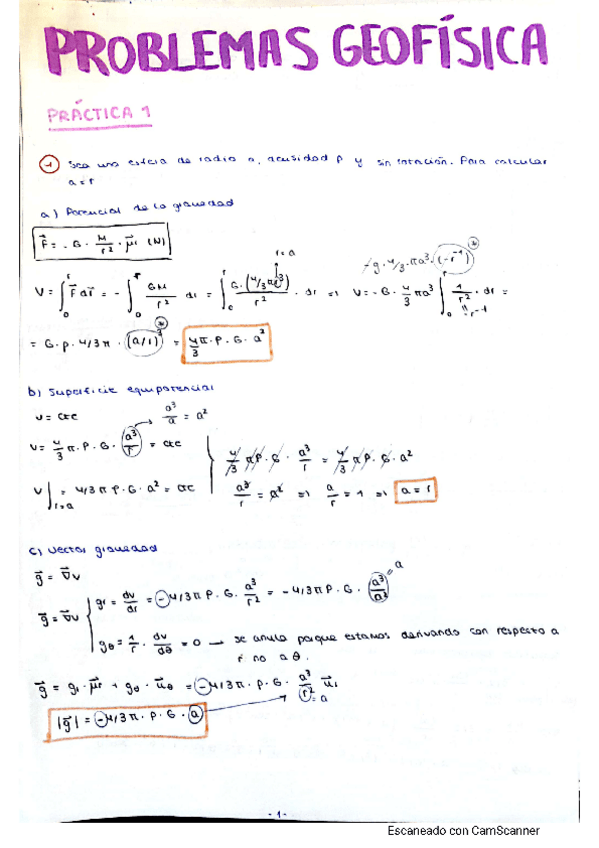 PROBLEMAS GEOFÍSICA
PRÁCTICA 1
1 Sea una esfera de radio a, densidad ρ y sin rotación. Para calcular
a = r
a) Potencial de la gravedad
F⃗ = - G · M/r² · μ⃗r (N)
r = a
V = ∫₀ʳ F⃗ dr⃗ = - ∫₀ʳ GM/r² dr = ∫₀ʳ G·(4/3 πa³)/r² · dr => V = - G · 4/3 πa³ ∫₀ʳ 1/r² · dr =
-g · 4/3 · πa³ · (-r⁻¹)
r⁻¹
= G · ρ · 4/3 π · (a/1)³ = 4π/3 · ρ · G · a²
b) Superficie equipotencial
V = cte
a³/a = a²
V = 4/3 π · ρ · G · (a³/r) = cte
4/3 π ρ · G · a³/r = 4/3 π ρ · G · a²
V|r=a = 4/3 π ρ · G · a² = cte
a³/r = a² => a/r = 1 => a = r
c) Vector gravedad
g⃗ = ∇⃗v
g⃗ = ∇⃗v { gr = dv/dr = - 4/3 π ρ · G · a³/r² = - 4/3 π ρ · G · (a³/a²) = a
gθ = 1/r · dv/dθ = 0 → se anula porque estamos derivando con respecto a
r no a θ.
g⃗ = gr · μ⃗r + gθ · u⃗θ = - 4/3 π · ρ · G · a³/r² u⃗r
= a
|g⃗| = - 4/3 π · ρ · G · a
- 1 -
Escaneado con CamScanner